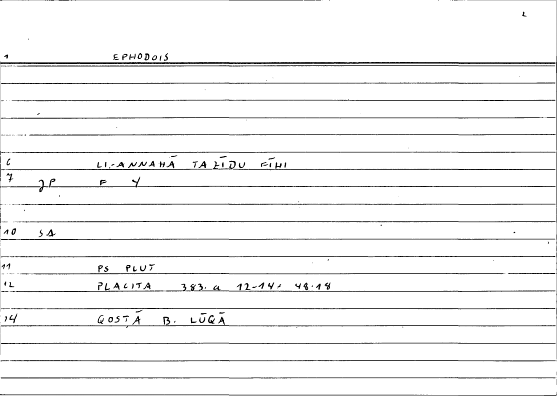 L
1 EPHODOIS
6 LI-ANNAHĀ TAZĪDU FĪHI
7 JP F Y
10 SA
11 PS PLUT
12 PLACITA 383. a 12-14; 48.18
14 QOSṬĀ B. LŪQĀ